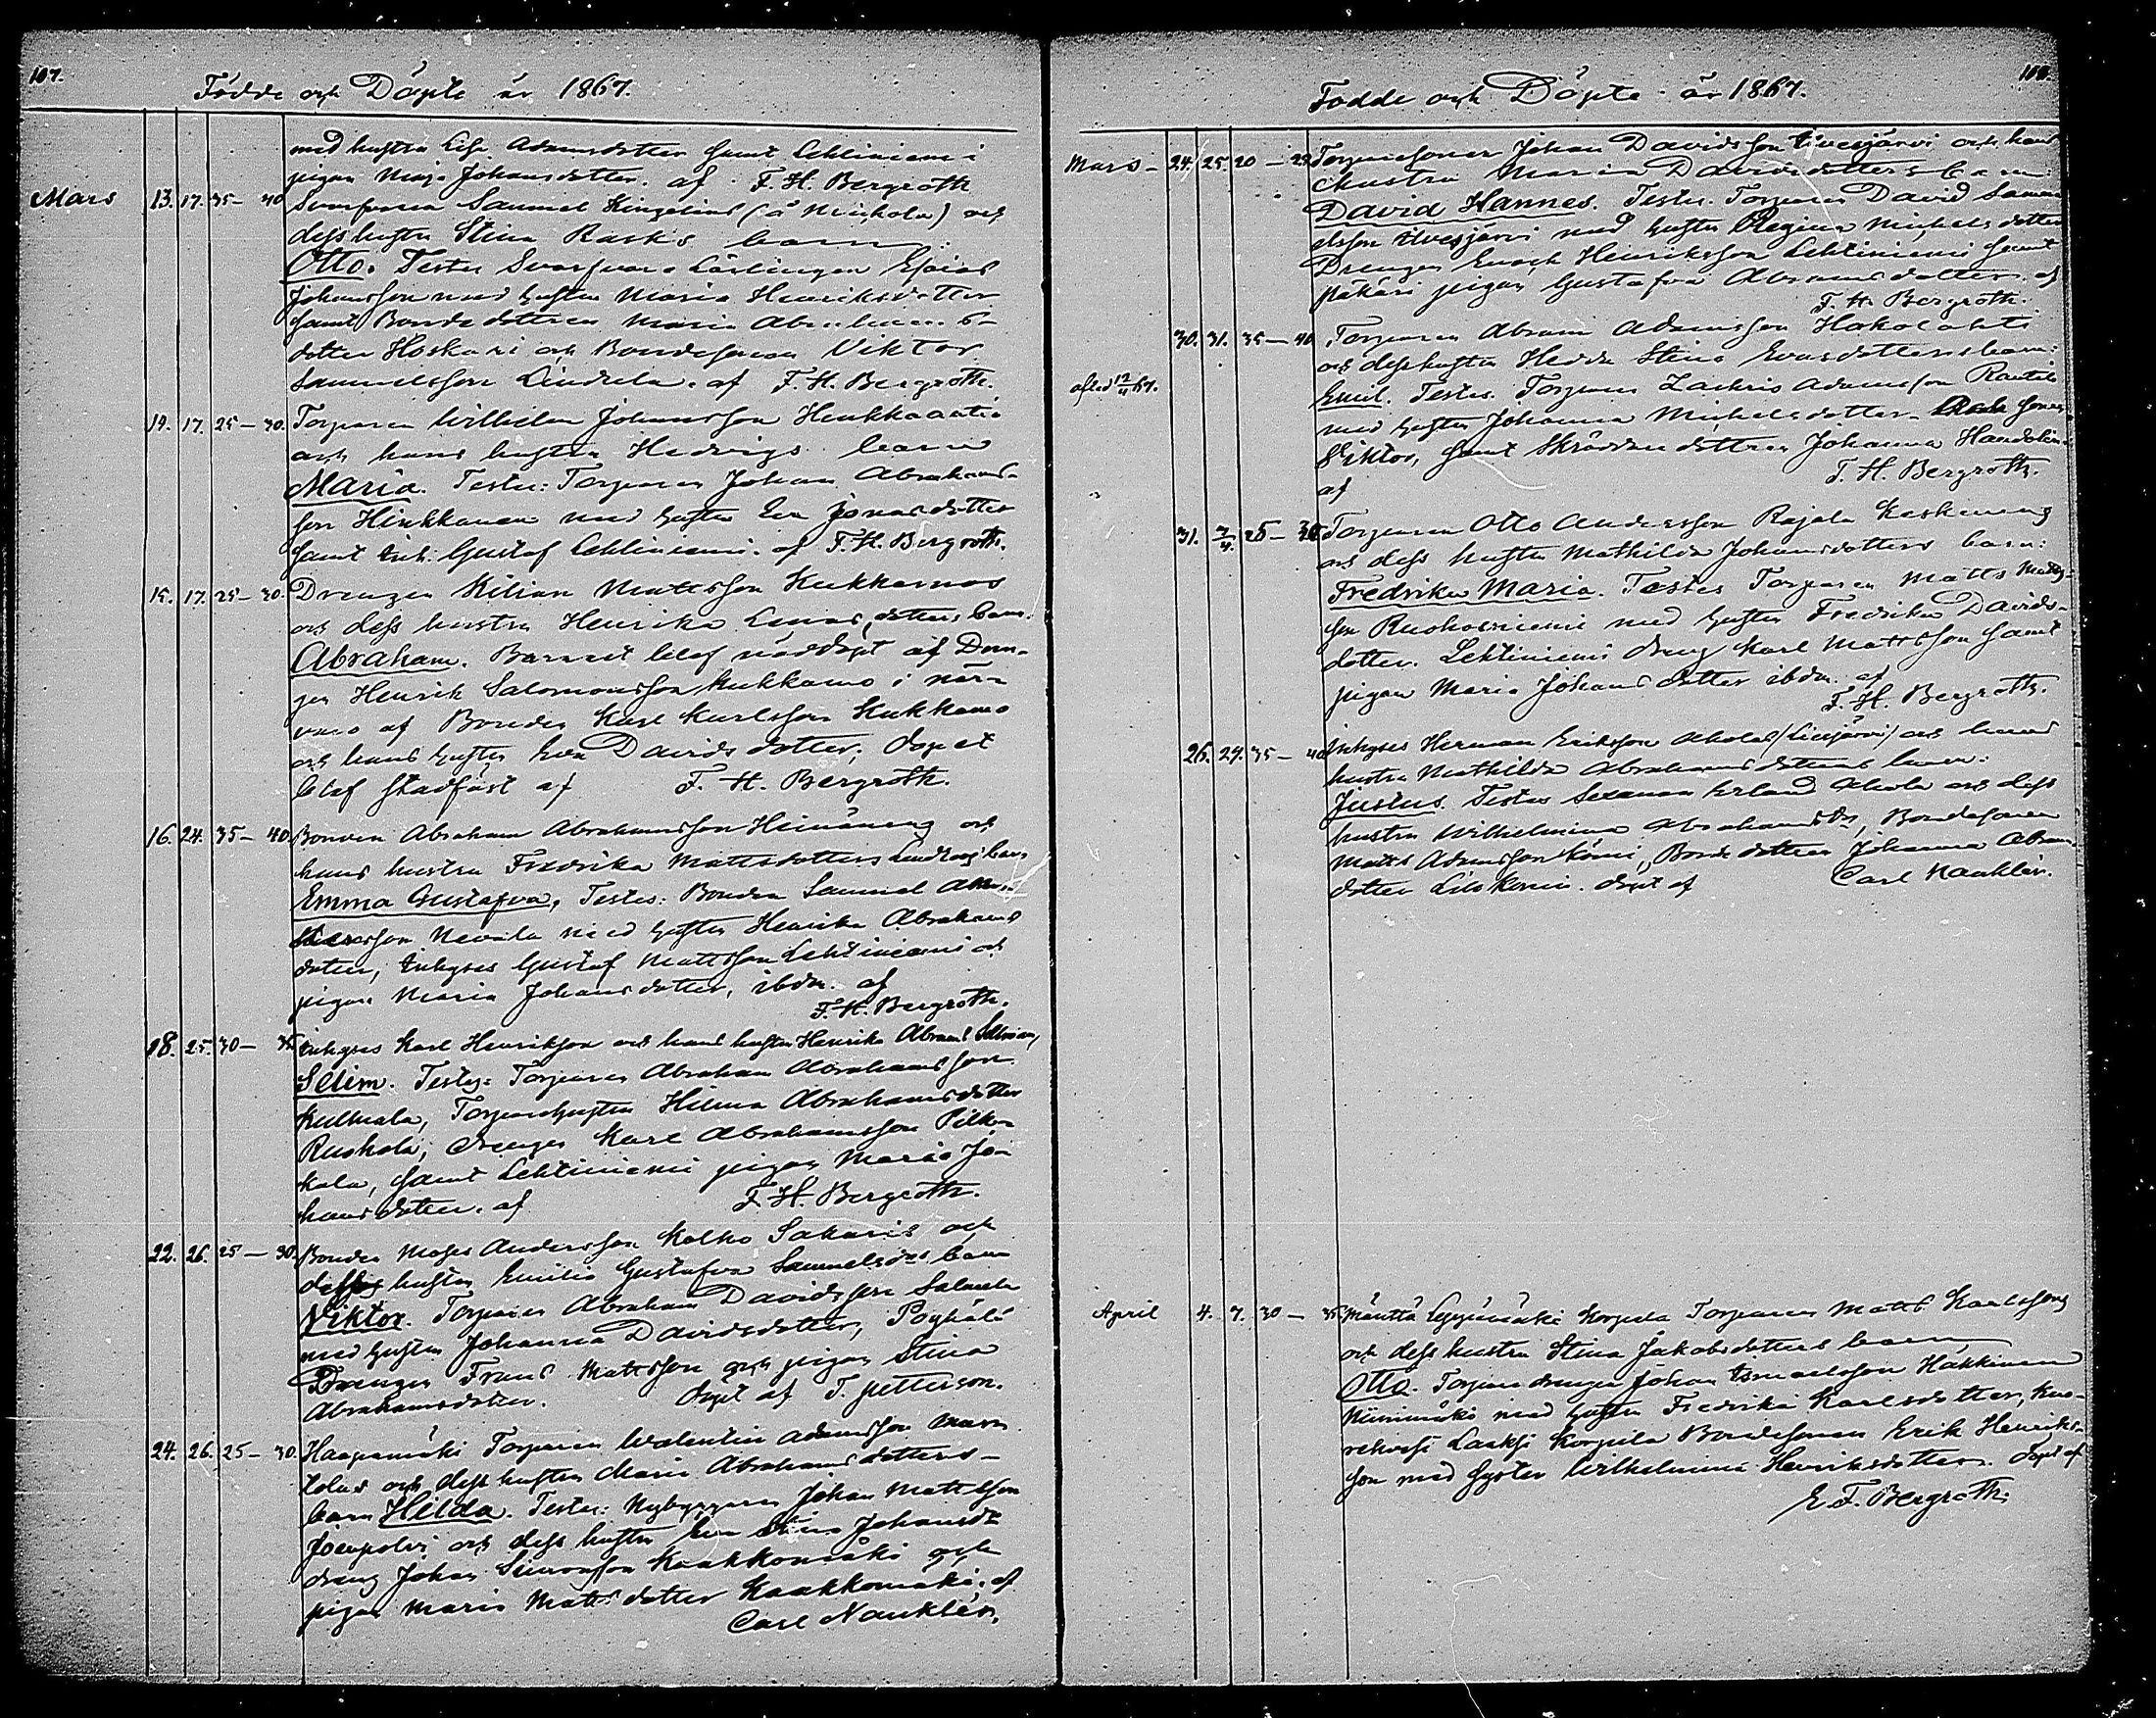 107.
Födde och Döpte år 1867.
med hustru Lisa Adamsdotter samt Lehtiniemi
pigan Maja Johansdotter. af F. H. Bergroth
Mars 13. 17. 35- 40 Svarfvaren Samuel Kingelins (å Niskola) och
dess hustru Stina Rasks barn:
Otto. Testes Svarfvare Lärlingen Esaias
Johansson med hustru Maria Henriksdotter
samt Bondedottren Maria
dotter Hoskari och Bondesonen Viktor
Samuelsson Lindula. af F. H. Bergroth.
14. 17. 25-30. Torparen Wilhelm Johansson
och hans hustru Hedvigs barn
Maria. Testes: Torparen Johan Abrahams-
son Hinkkanen med hustru Eva Jonasdotter
samt Inh: Gustaf Lehtiniemi. af F. H. Bergroth.
15. 17. 25-30. Drengen Kilian Mattsson Kukkamos
och dess hustru Henrika dotters barn
Abraham. Barnet blef nöddöpt af Dren-
gen Henrik Salomonsson Kukkamo i när-
varo af Bonden Karl Karlsson Kukkamo
och hans hustru Eva Davidsdotter; dopet
blef stadfäst af F. H. Bergroth.
16. 24. 35-40. Bonden Abraham Abrahamsson Heinänens och
hans hustru Fredrika Mattsdotters barn
Emma Gustafva, Testes: Bonden Samuel
son Nevala med hustru Henrika Abrahams
dotter, Inhyses Gustaf Mattsson Lehtiniemi och
pigan Maria Johansdotter, ibdm. af
F. H. Bergroth.
18. 25. 30-35 Inhyses Karl Henriksson och hans hustru Henrika Abrams
Selim. Testes: Torparen Abraham Abrahamsson
Kulmala, Torparehustrun Hilma Abrahamsdotter
Ruohola, drengen Karl Abrahamsson Pilk-
kala, samt Lehtiniemi pigan Maria Jo-
hansdotter. af F. H. Bergroth.
22. 26. 25-30. Bonden Moses Andersson Kolho Sakaris och
dess hustru Emilia Gustafva Samuelsdrs barn
Viktor. Torparen Abraham Davidsson Salmela
med hustru Johanna Davidsdotter, Pöyhölä
Drengen Frans Mattsson och pigan Stina
Abrahamsdotter. Döpt af T. Petterson.
24. 26. 25-30. Haapamäki Torparen Walentin Adamsson
och dess hustru Maria Abrahamsdotters
barn Hilda. Testes: Nybyggaren Johan Mattsson
Joenpolvi och dess hustru Eva Stina Johansdr
dreng Johan Simonsson Kaakkomäki och
pigan Maria Mattsdotter Kaakkomäki. af
Carl Nauklér.
108.
Födde och Döpte år 1867.
Mars - 24. 25. 20-25 Torparesonen Johan Davidsson Ilvesjärvi och hans
hustru Maria Davidsdotters barn:
David Hannes. Testes: Torparen David Samu-
elsson Ilvesjärvi med hustru Regina Michelsdotter
Drengen Enoch Henriksson Lehtiniemi samt
pigan Gustafva Abramsdotter. af
F. H. Bergroth.
30. 31. 35-40 Torparen Abram Adamsson Hokolahti
och dess hustru Hedda Stina Evasdotters barn:
afled 12/4 67. Emil. Testes. Torparen Zachris Adamsson Rautio
med hustru Johanna Michelsdotter - sonen
Viktor, samt Skräddaredottren Johanna Handolin.
af F. H. Bergroth.
31. 7/4. 25-30 Torparen Otto Andersson Rajala Keskinens
och dess hustru Mathilda Johansdotters barn:
Fredrika Maria. Testes Torparen Matts Matts-
son Ruohoniemi med hustru Fredrika Davids-
dotter. Lehtiniemi dreng Karl Mattsson samt
pigan Maria Johansdotter ibdm. af
F. H. Bergroth.
26. 29. 35-40 Inhyses Herman Eriksson Aholas (Liesjärvi) och hans
hustru Mathilda Abrahamsdotters barn:
Justus. Testes Sexman Erland Ahola och dess
hustru Wilhelmina Abrahamsdr, Bondesonen
Matts Adamsson Kömi, Bondedottren Johanna Abrams
dotter. döpt af Carl Nauklér.
April 4. 7. 30-35. Mänttä Korpela Torparen Matts Karlssons
och dess hustru Stina Jakobsdotters barn
Otto. Torparedrengen Johan Ismaelsson Häkkinen
Niinimäki med hustru Fredrika Karlsdotter,
Korpela Bondesonen Erik Henriks-
son med syster Wilhelmina Henriksdotter. Döpt af
E. F. Bergroth.